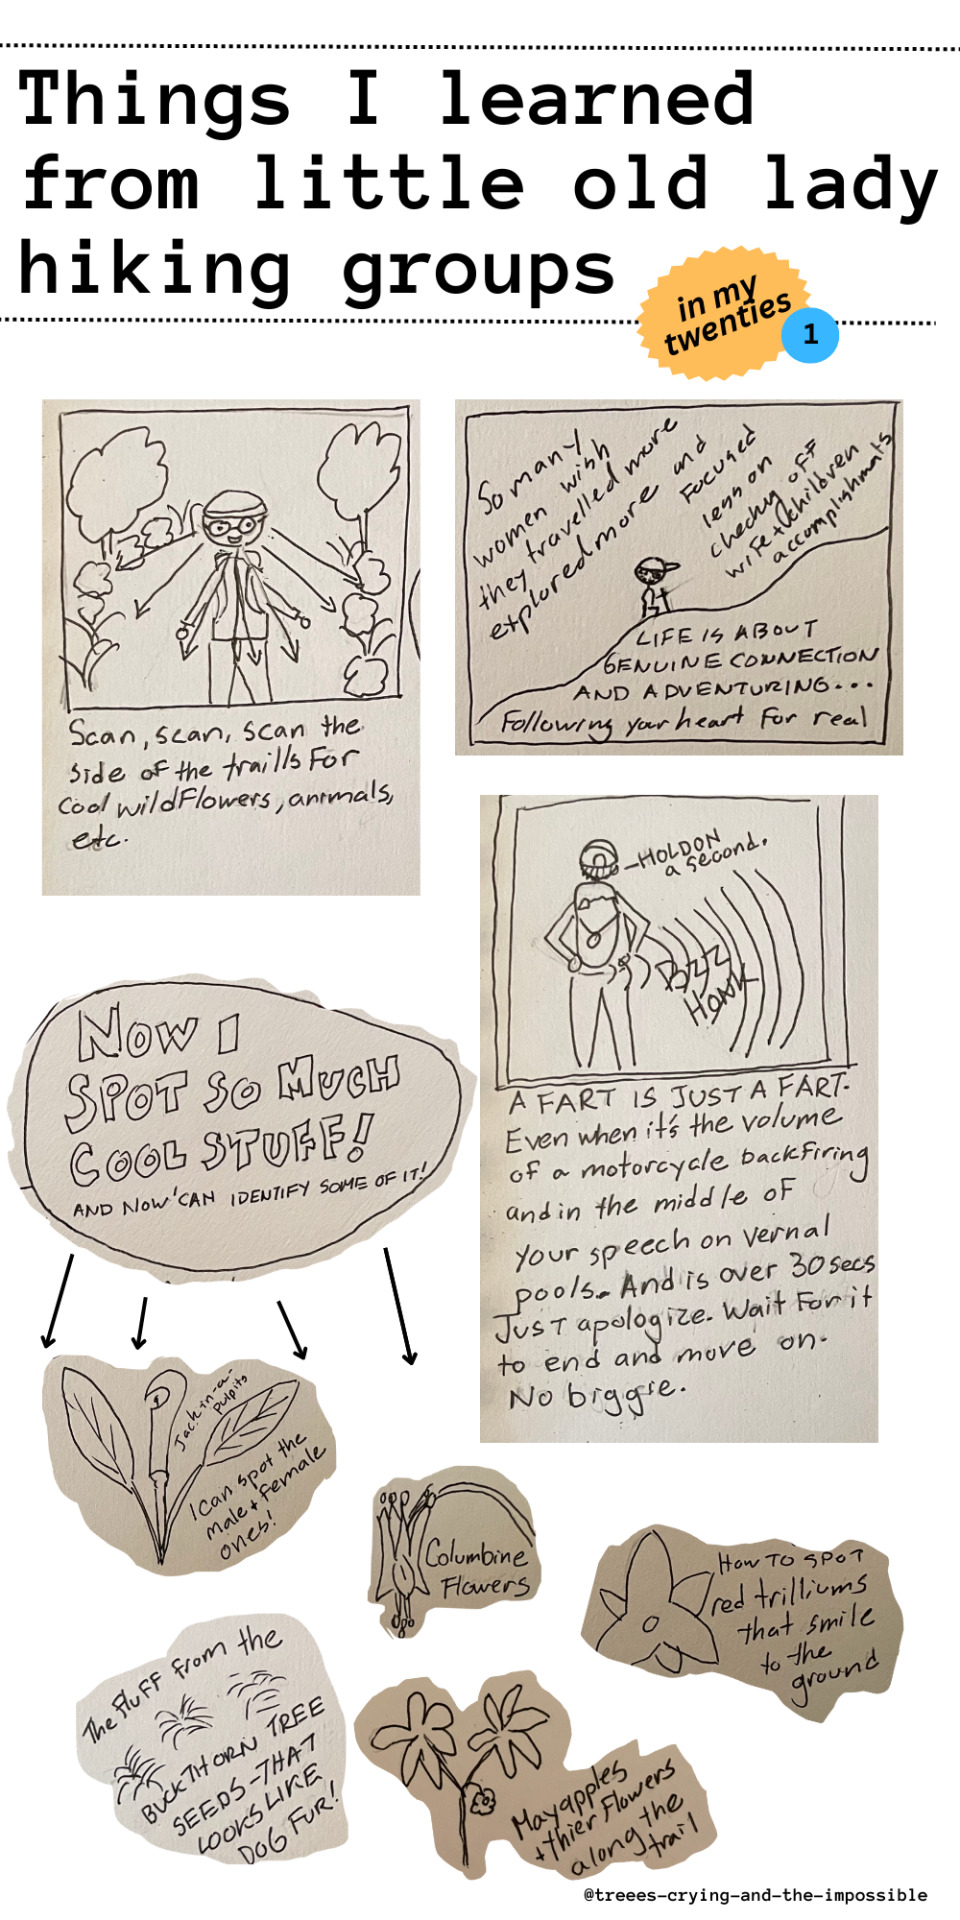 Things I learned
from little old lady
hiking groups
in my
twenties
1
Scan, scan, scan the
side of the traills For
cool wildFlowers, animals,
etc.
So many
women wish
they travelled more
explored more and
Focused
less on
checkg off
wife + children
accomplishmats
LIFE IS ABOUT
GENUINE CONNECTION
AND ADVENTURING...
Following your heart For real
-HOLD ON
a second.
BZZ
HONK
A FART IS JUST A FART.
Even when it's the volume
of a motorcycle backfiring
and in the middle of
your speech on vernal
pools. And is over 30 secs
JUST apologize. Wait For it
to end and move on.
No biggie.
NOW I
SPOT SO MUCH
COOL STUFF!
AND NOW I CAN IDENTIFY SOME OF IT!
Jack-in-a-
pulpits
I can spot the
male + female
ones!
Columbine
Flowers
HOW TO SPOT
red trilliums
that smile
to the
ground
The Fluff from the
BUCKTHORN TREE
SEEDS-THAT
LOOKS LIKE
DOG FUR!
Mayapples
+ thier Flowers
along the
trail
@treees-crying-and-the-impossible